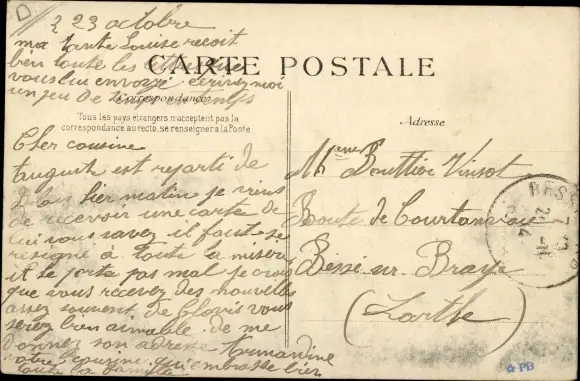 23 octobre
ma tante Louise reçoit
bien toute les
vous lui envoyé écrivez moi
un peu de temps
CARTE POSTALE
Correspondance
Tous les pays étrangers n'acceptent pas la
correspondance au recto, se renseigner à la Poste
Cher cousine
Auguste est reparti de
hier matin je viens
de recevoir une carte de
lui vous savez il faut se
résigné à toute la misère
il se porte pas mal je crois
que vous recevez des nouvelles
assez souvent de Clovis vous
serez bien aimable de me
donnez son adresse Armandine
votre cousine qui embrasse bien
toute la famille
Adresse
Mme Bouttier Vinsot
Route de Courtanvaux
Bessé sur Braye
(Sarthe)
BESS
PB